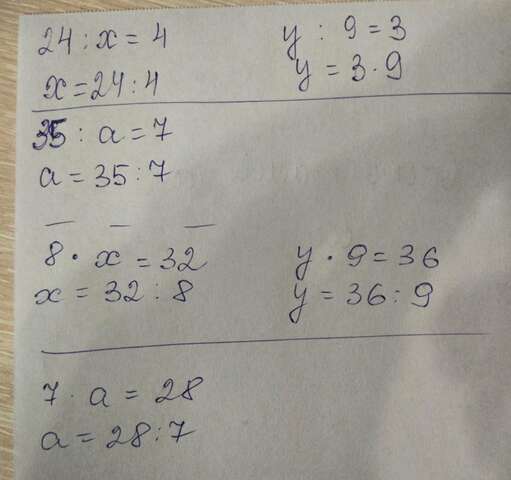 24 : x = 4
x = 24 : 4
y : 9 = 3
y = 3 · 9
35 : a = 7
a = 35 : 7
8 · x = 32
x = 32 : 8
y · 9 = 36
y = 36 : 9
7 · a = 28
a = 28 : 7